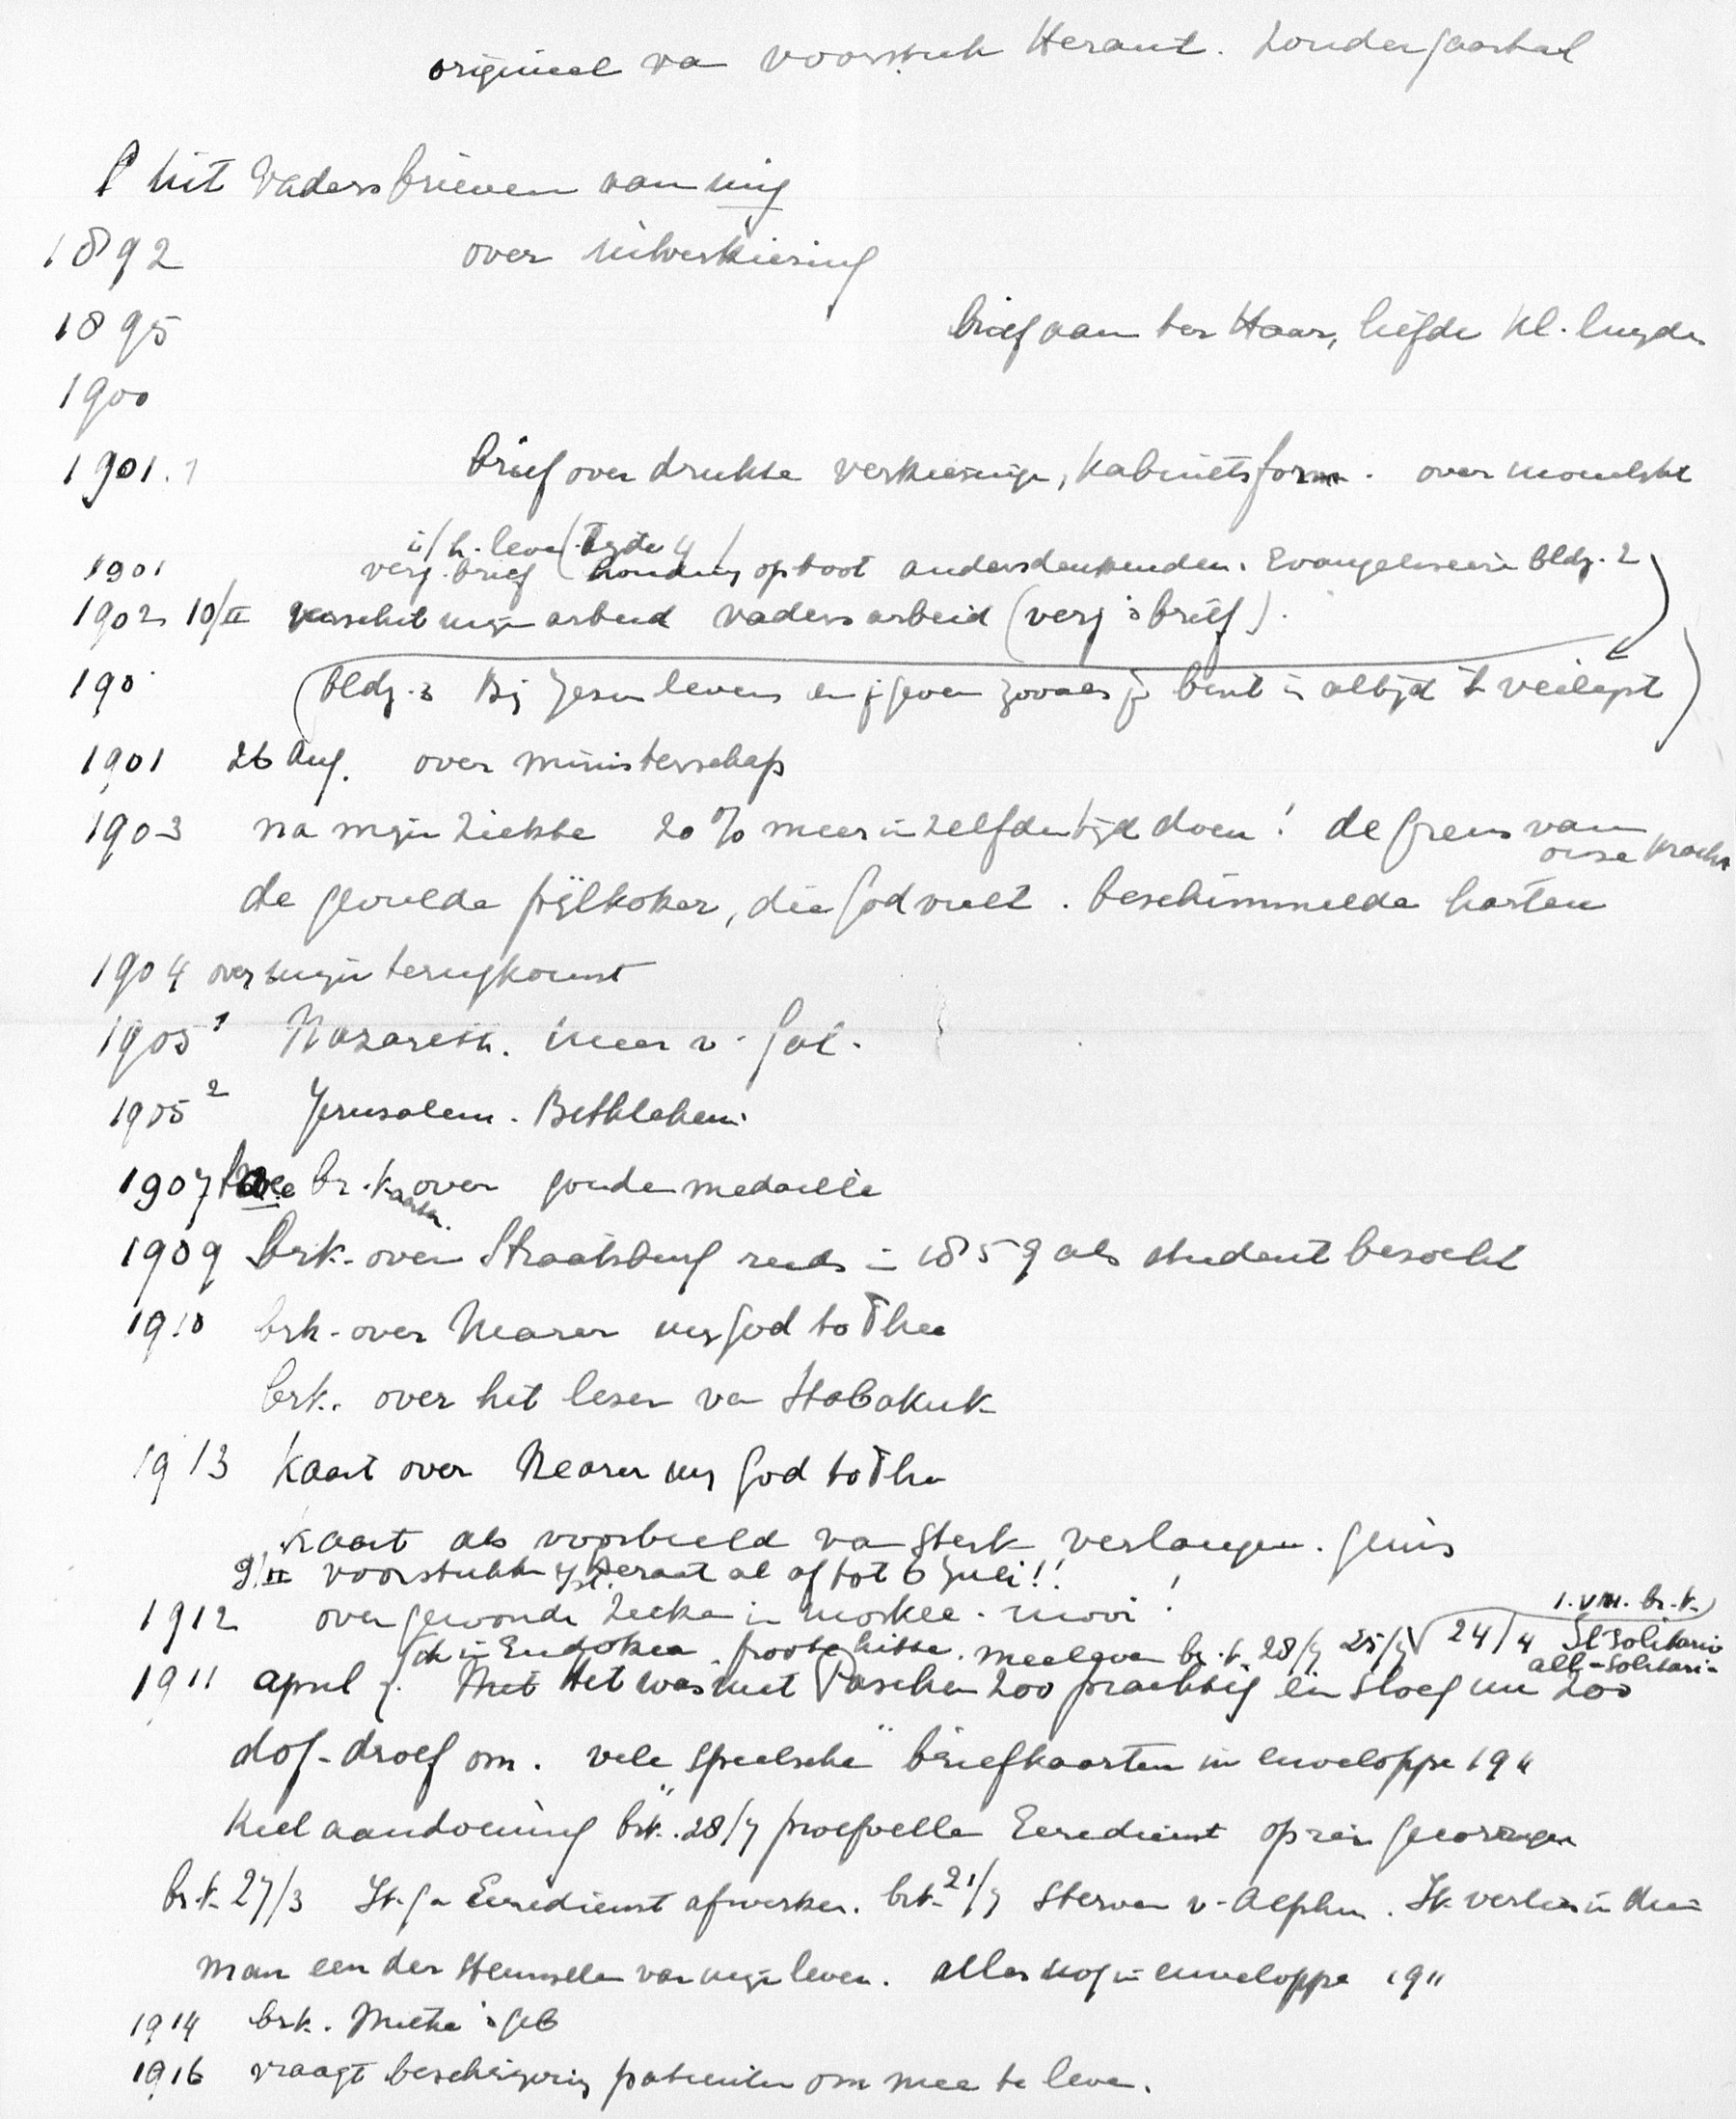 origineel va voorstuk Heraut.
Uit Vaders brieven aan mij
1892 over uitverkiezing
1895 brief aan ter Haar, liefde kl. luyden
1900
1901.1 brief over drukte verkiezinge, kabinetsform. over
i/h. leve
1901 verg. brief houding op boot andersdenkenden. Evangeliseere bldz. 2
1902 10/II verschil mijn arbeid vaders arbeid (verg 's brief).
190 (bldz. 3 Bij Jezus leven en geven zooals je bent is altijd 't veiligst)
1901 26 Aug. over ministerschap
1903 na mijn ziekte 20% meer in zelfden tijd doen! de grens van
onze kracht
de gevulde pijlkoker, die God vult. beschimmelde harten
1904 over mijn terugkomst
1905 1 Nazareth. Meer v. Gal.
1905 2 Jerusalem. Bethlehem.
1907 twee br. kaarten over gouden medaille
1909 brk. over Straatsburg reeds in 1859 als student bezocht
1910 brk. over Nearer my God to Thee
brk. over het lezen va Habakuk
1913 kaart over Nearer my God to Thee
kaart als voorbeeld va sterk verlangen.
9/II voorstukken Heraut al af tot 6 Juli!!
1912 over gewonde in moskee. mooi!
1. v.m. br. k.
groote hitte. br. k. 28/7 25/7 24/4 Il Solitario
all-Solitari-
1911 april Het was met Paschen zoo prachtig en sloeg nu zoo
dof-droef om. vele "speelsche" briefkaarten in enveloppe 1911
Keelaandoening brk. 28/7 proefvellen Eeredienst op reis
br. k. 27/3 Ik ga Eeredienst afwerken. brk. 21/7 Sterven v. Alphen. Ik verlies in dien
man een der van mijn leven. alles nog in enveloppe 1911
1914 brk. Mieke 's geb
1916 vraagt beschrijving patienten om mee te leve.